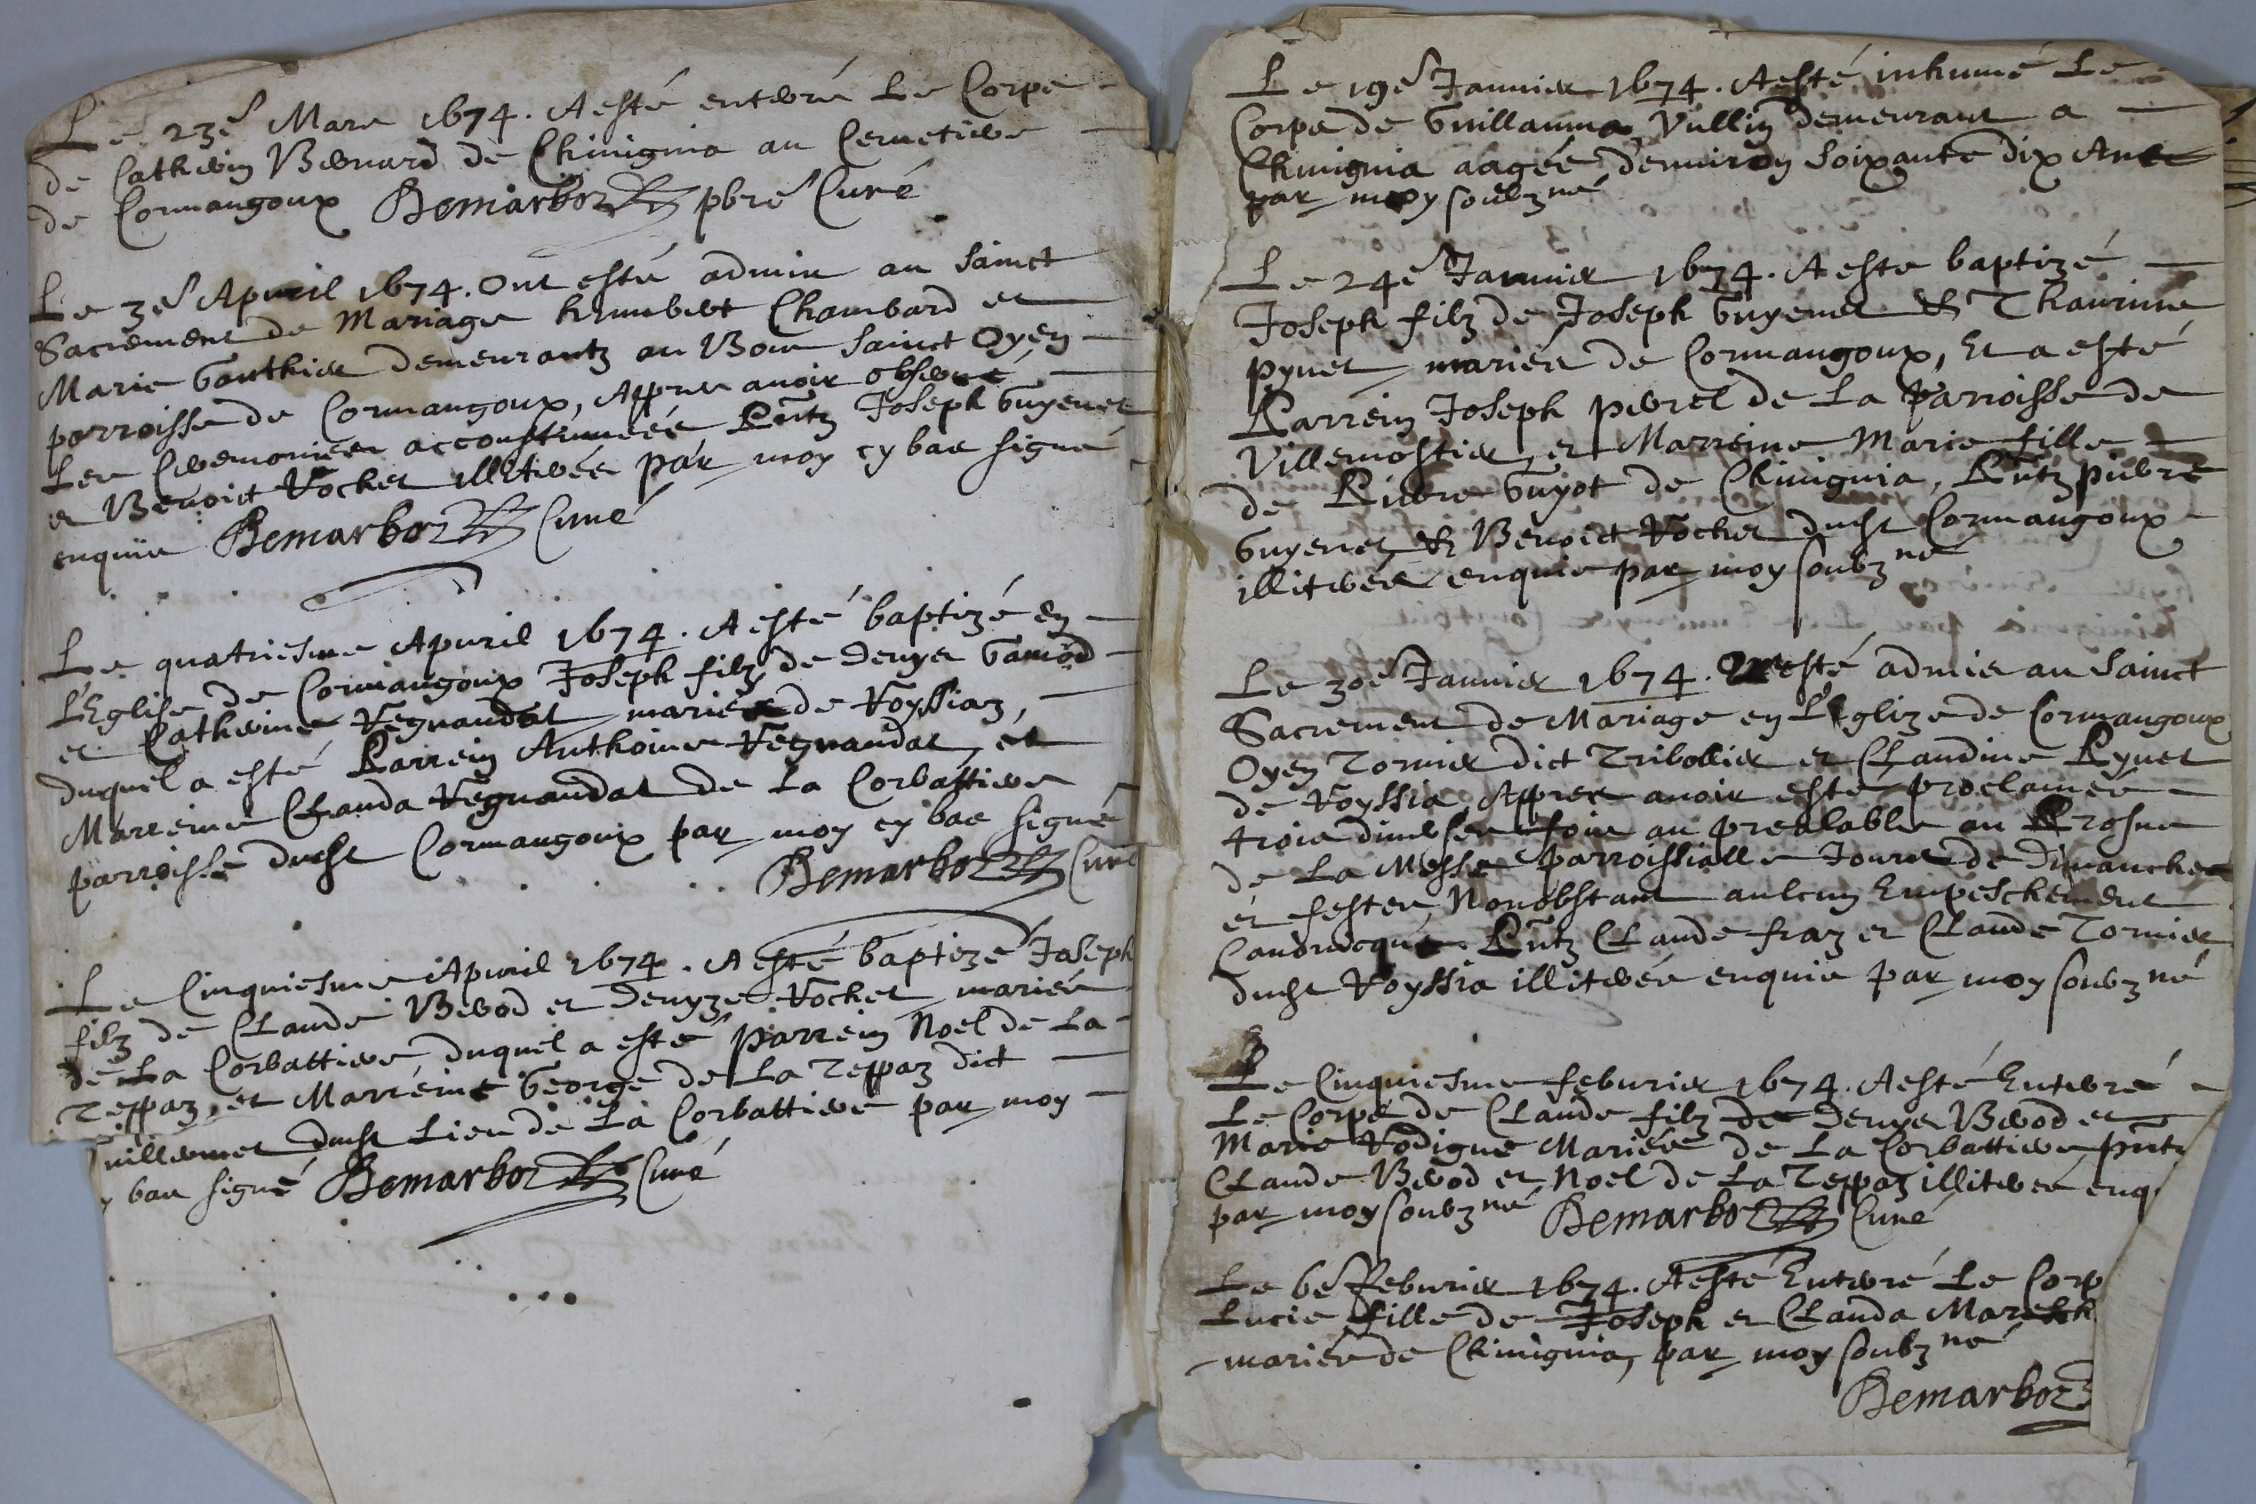 Le 23e Mars 1674. A esté enterré Le Corps
de Catherin Bernard de Chinignia au Cemetiere
de Cormangoux Bemarboz pbre Curé
Le 3e Apuril 1674. Ont esté admis au sainct
Sacrement de Mariage humbert Chambard et
Marie Gonthier demeurantz au Bour sainct Oyen
parroisse de Cormangoux, Appres auoir obserué
Les Ceremonies accoustumées Pntz Joseph Guyenet
et Benoict Rochet illiterés par moy cy bas signé
enquis Bemarboz Curé
Le quatriesme Apuril 1674. A esté baptizé en
L'Eglise de Cormangoux Joseph filz de denys Gamod
et Catherine Regnaudat mariés de Royssiaz,
duquel a esté Parrein Anthoine Regnaudat, et
Marreine Clauda Regnaudat de La Corbattiere
parroisse dudt Cormangoux par moy cy bas signé
Bemarboz Curé
Le Cinquiesme Apuril 1674. A esté baptizé Joseph
filz de Claude Berod et denyze Rochet mariés
de La Corbattiere duquel a esté parrein Noel de La
Teppaz, et Marreine George de La Teppaz dict
uillermet dudt Lieu de La Corbattiere par moy
y bas signé Bemarboz Curé
Le 19e Januier 1674. A esté inhumé Le
Corps de Guillauma Vullin demeurant a
Chinignia aagée denuiron soixante dix Ans
par moy soubzné
Le 24e Januier 1674. A esté baptizé
Joseph filz de Joseph Guyenet & Thaurine
pynet mariés de Cormangoux, Et a esté
Parrein Joseph perrel de La parroisse de
Villemostier, et Marreine Marie fille
de Pierre Guyot de Chinignia, Pntz pierre
Guyenet & Benoict Rochet dudt Cormangoux
illiterés enquis par moy soubzné
Le 30e Januier 1674. Ont esté admis au sainct
Sacrement de Mariage en L'Eglize de Cormangoux
Oyen Tornier dict Tribollier et Claudine Pynet
de Royssia, Appres auoir esté proclamés
trois diuerses fois au prealable au Prosne
de La Messe parroissialle Jours de dimanches
et festes, Nonobstant aulcun Empeschement
Canonicque Pntz Claude fraz et Claude Tornier
dudt Royssia illiterés enquis par moy soubzné
Le Cinquiesme feburier 1674. A esté Enterré
Le Corps de Claude filz de denys Berod et
Marie Rodigue Mariés de La Corbattiere pnt
Claude Berod et Noel de La Teppaz illiterés enq
par moy soubzné Bemarboz Curé
Le 6e Feburier 1674. A esté Enterré Le Corp
Lucie fille de Joseph et Clauda Maresch
mariés de Chinignia, par moy soubzné
Bemarboz